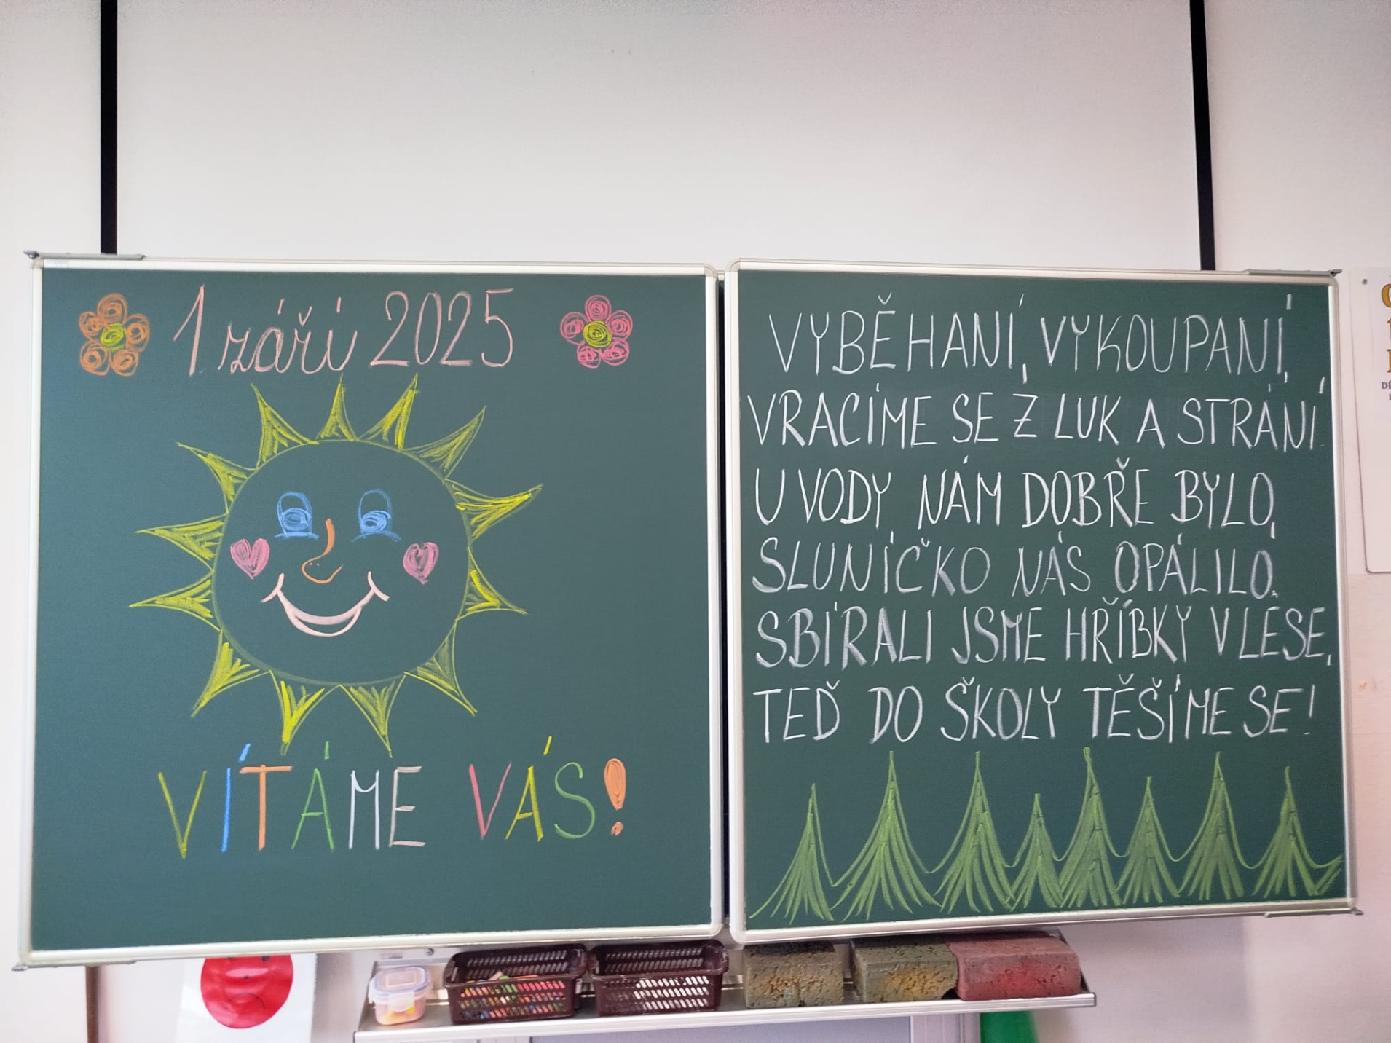 1 září 2025
VÍTÁME VÁS!
VYBĚHANÍ, VYKOUPANÍ,
VRACÍME SE Z LUK A STRÁNÍ.
U VODY NÁM DOBŘE BYLO,
SLUNÍČKO NÁS OPÁLILO.
SBÍRALI JSME HŘÍBKY V LESE,
TEĎ DO ŠKOLY TĚŠÍME SE!